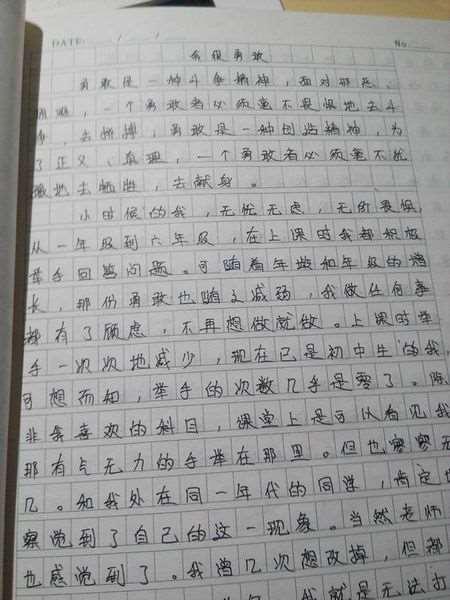 DATE: / / No.
我很勇敢
勇敢是一种斗争精神,面对邪恶、
困难,一个勇敢者必须毫不畏惧地去斗
争,去拼搏,勇敢是一种创造精神,为
了正义、真理,一个勇敢者必须毫不犹
豫地去牺牲,去献身。
小时候的我,无忧无虑,无所畏惧,
从一年级到六年级,在上课时我都积极
举手回答问题。可随着年龄和年级的增
长,那份勇敢也随之减弱,我做任何事
都有了顾虑,不再想做就做。上课时举
手一次次地减少,现在已是初中生的我,
可想而知,举手的次数几乎是零了。除
非我喜欢的科目,课堂上是可以看见我
那有气无力的手举在那里。但也寥寥无
几。和我处在同一年代的同学,肯定也
察觉到了自己的这一现象。当然老师
也感觉到了。我曾几次想改掉,但都
我就是无法打